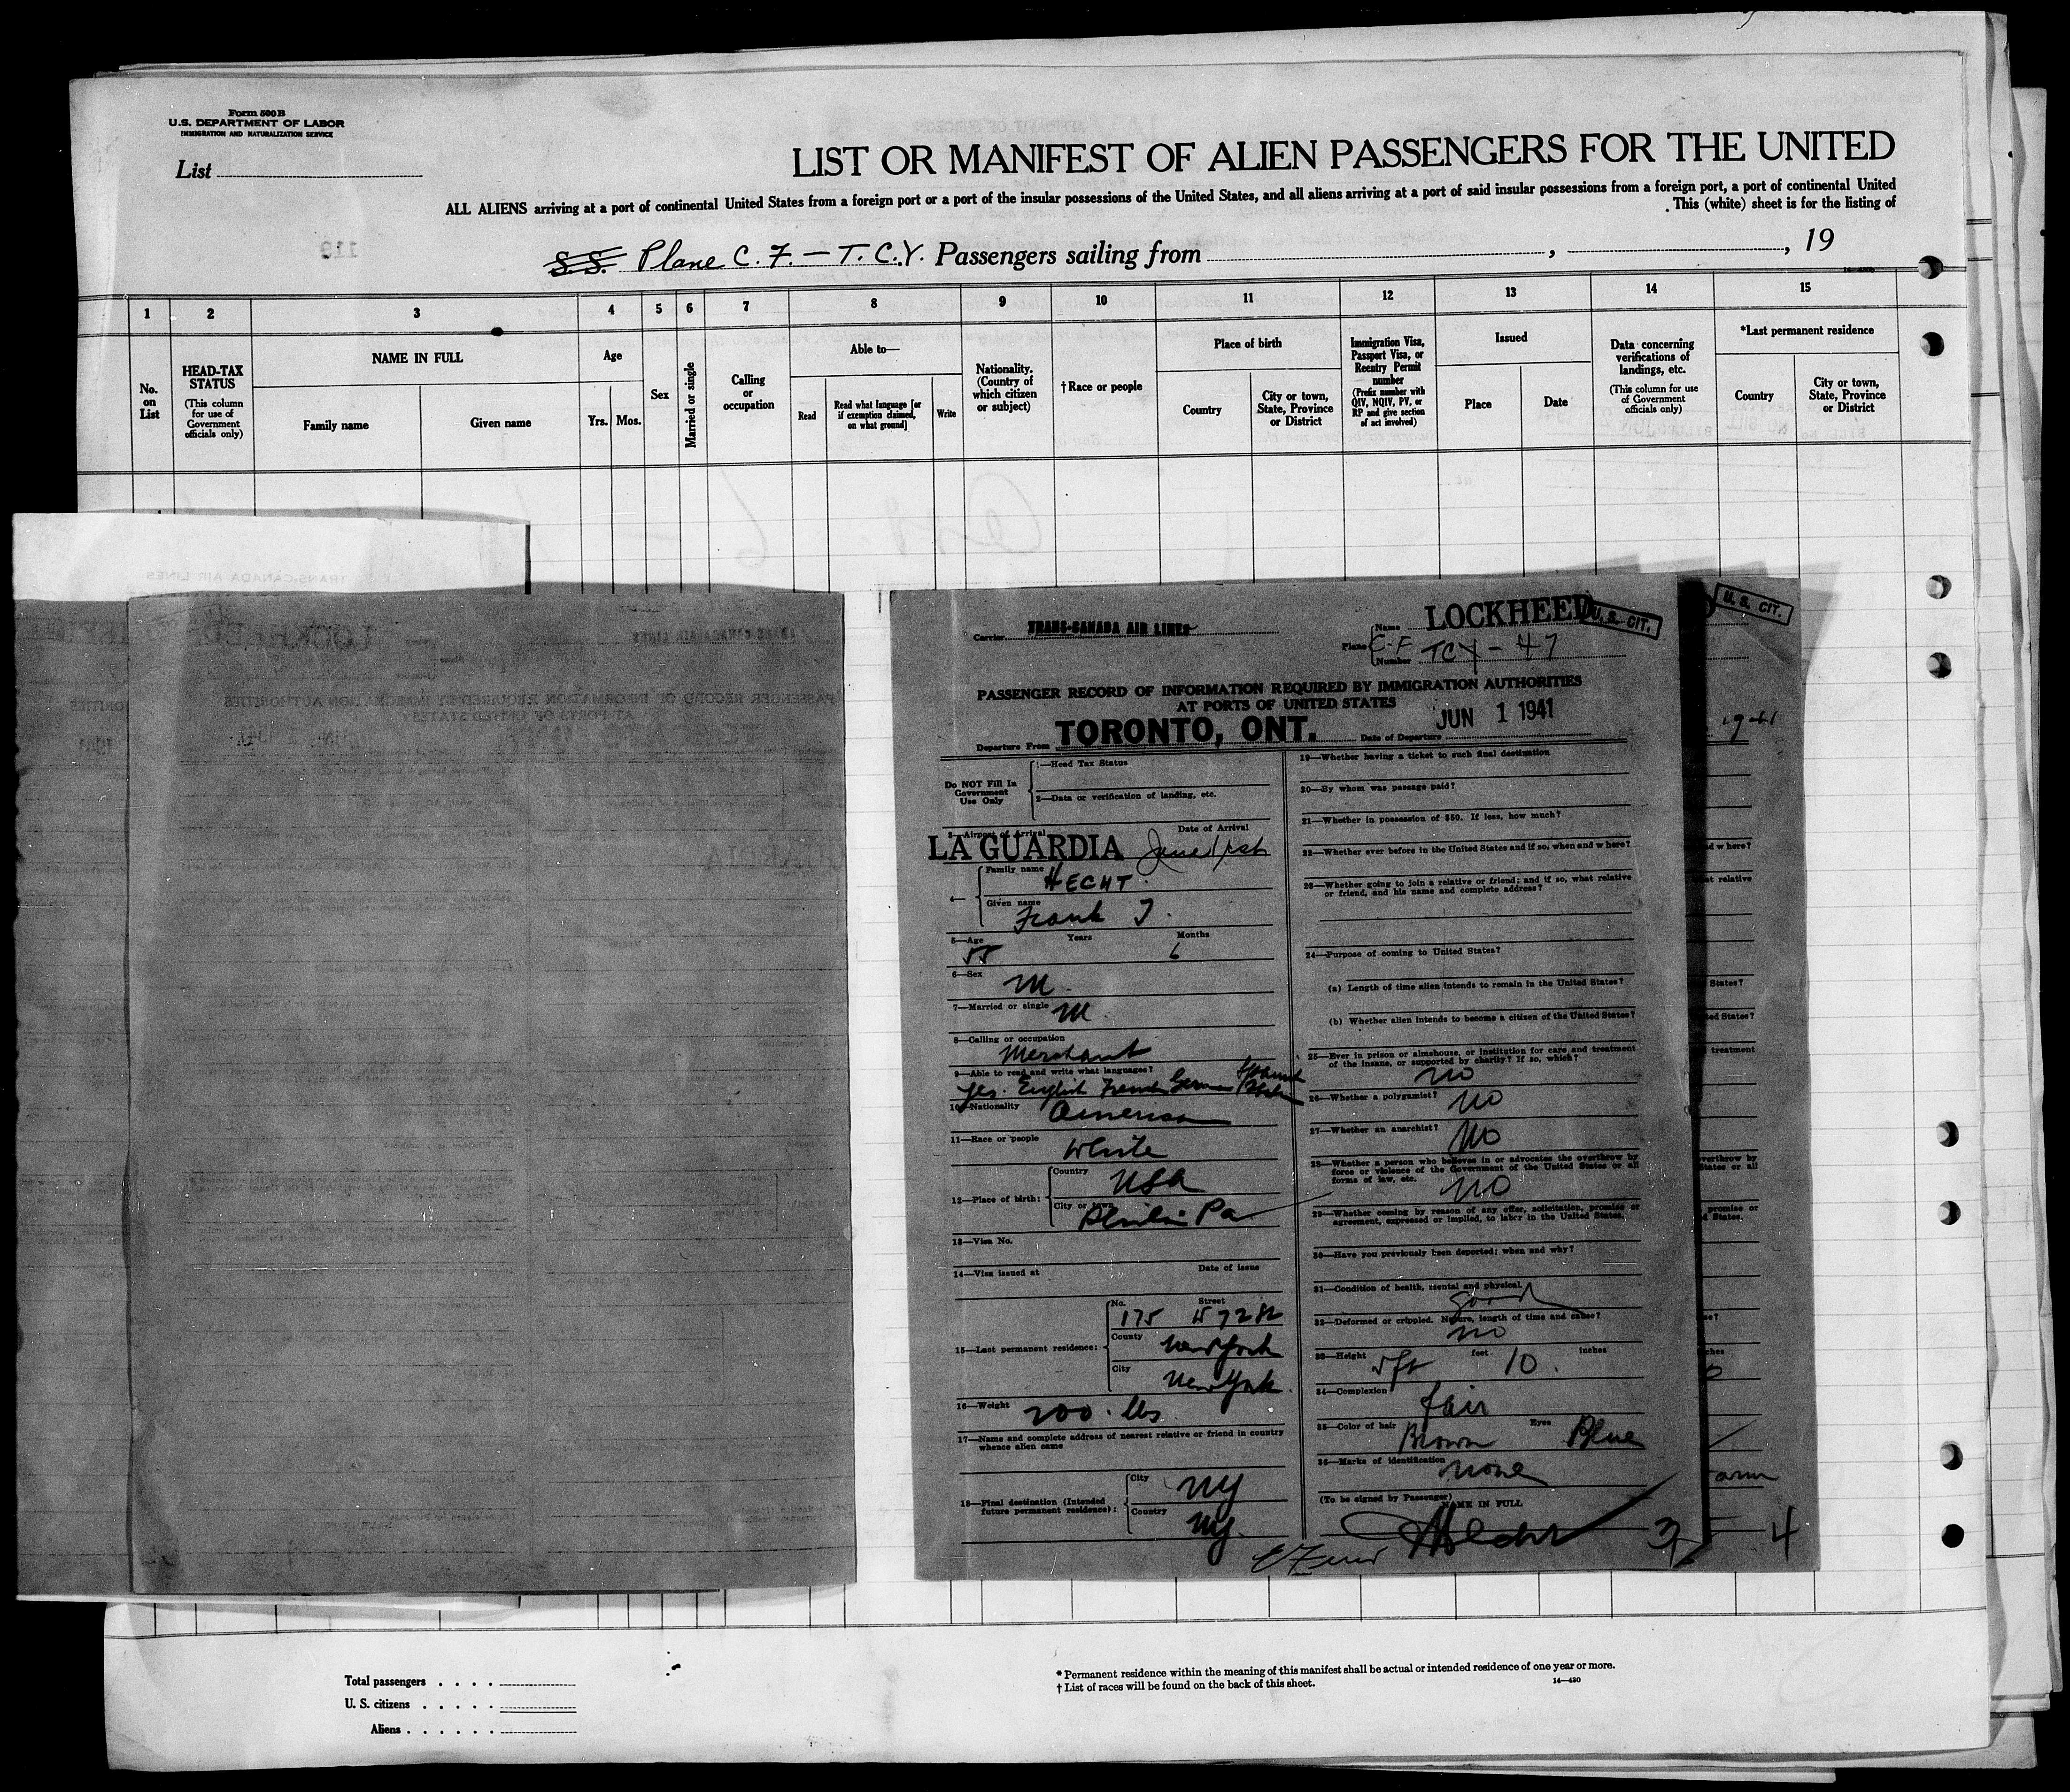 Form 500 B
U.S. DEPARTMENT OF LABOR
IMMIGRATION AND NATURALIZATION SERVICE
List
LIST OR MANIFEST OF ALIEN PASSENGERS FOR THE UNITED
ALL ALIENS arriving at a port of continental United States from a foreign port or a port of the insular possessions of the United States, and all aliens arriving at a port of said insular possessions from a foreign port, a port of continental United
This (white) sheet is for the listing of
S.S. Plane C. F. — T. C. Y. Passengers sailing from , , 19
1 2 3 4 5 6 7 8 9 10 11 12 13 14 15
No. on List
HEAD-TAX STATUS
(This column for use of Government officials only)
NAME IN FULL
Family name
Given name
Age
Yrs. Mos.
Sex
Married or single
Calling or occupation
Able to—
Read
Read what language [or if exemption claimed, on what ground]
Write
Nationality. (Country of which citizen or subject)
† Race or people
Place of birth
Country
City or town, State, Province or District
Immigration Visa, Passport Visa, or Reentry Permit number
(Prefix number with QIV, NQIV, PV, or RP and give section of act involved)
Issued
Place
Date
Data concerning verifications of landings, etc.
(This column for use of Government officials only)
*Last permanent residence
Country
City or town, State, Province or District
Carrier TRANS-CANADA AIR LINES
Plane Name LOCKHEED
U. S. CIT.
U. S. CIT.
Number C-F TCY - 47
PASSENGER RECORD OF INFORMATION REQUIRED BY IMMIGRATION AUTHORITIES
AT PORTS OF UNITED STATES
Departure From TORONTO, ONT. Date of Departure JUN 1 1941
Do NOT Fill In Government Use Only
1—Head Tax Status
2—Data or verification of landing, etc.
3—Airport of Arrival Date of Arrival
LA GUARDIA June 1/st
4— Family name HECHT
Given name Frank J.
5—Age Years Months
55 6
6—Sex M
7—Married or single M
8—Calling or occupation
Merchant
9—Able to read and write what languages?
Yes. English French German Spanish
10—Nationality American
11—Race or people
White
12—Place of birth: Country
USA
City or town
Phila Pa
13—Visa No.
14—Visa issued at Date of issue
15—Last permanent residence: No. Street
175 W 72 St
County New York
City New York
16—Weight 200 lbs
17—Name and complete address of nearest relative or friend in country whence alien came
18—Final destination (Intended future permanent residence): City NY
Country NY.
19—Whether having a ticket to such final destination
20—By whom was passage paid?
21—Whether in possession of $50. If less, how much?
22—Whether ever before in the United States and if so, when and where?
23—Whether going to join a relative or friend; and if so, what relative or friend, and his name and complete address?
24—Purpose of coming to United States?
(a) Length of time alien intends to remain in the United States?
(b) Whether alien intends to become a citizen of the United States?
25—Ever in prison or almshouse, or institution for care and treatment of the insane, or supported by charity? If so, which?
no
26—Whether a polygamist? no
27—Whether an anarchist? No
28—Whether a person who believes in or advocates the overthrow by force or violence of the Government of the United States or all forms of law, etc.
no
29—Whether coming by reason of any offer, solicitation, promise or agreement, expressed or implied, to labor in the United States.
30—Have you previously been deported; when and why?
31—Condition of health, mental and physical.
good
32—Deformed or crippled. Nature, length of time and cause?
no
33—Height 5 ft feet 10. inches
34—Complexion fair
35—Color of hair Brown Eyes Blue
36—Marks of identification none
(To be signed by Passenger) NAME IN FULL
3
4
Total passengers
U. S. citizens
Aliens
* Permanent residence within the meaning of this manifest shall be actual or intended residence of one year or more.
† List of races will be found on the back of this sheet.
14—430